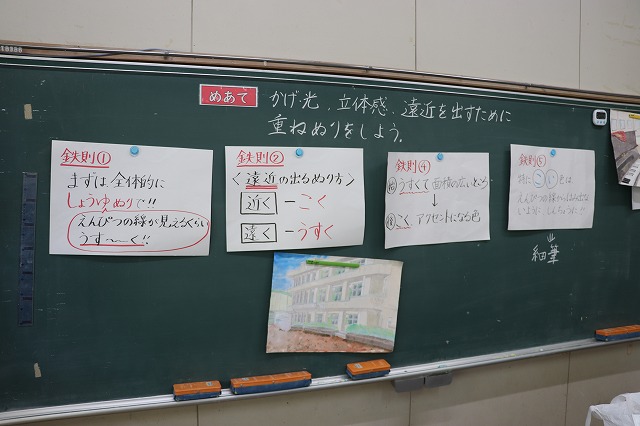 めあて
かげ光、立体感、遠近を出すために
重ねぬりをしよう。
鉄則①
まずは全体的に
しょうゆぬりで!!
えんぴつの線が見えるくらい
うす〜〜く!!
鉄則②
<遠近の出るぬり方>
近く-こく
遠く-うすく
鉄則④
うすくて面積の広いところ
↓
こくアクセントになる色
鉄則⑤
特にこい色は
えんぴつの線からはみ出さ
ないようにしんちょうに!!
細筆